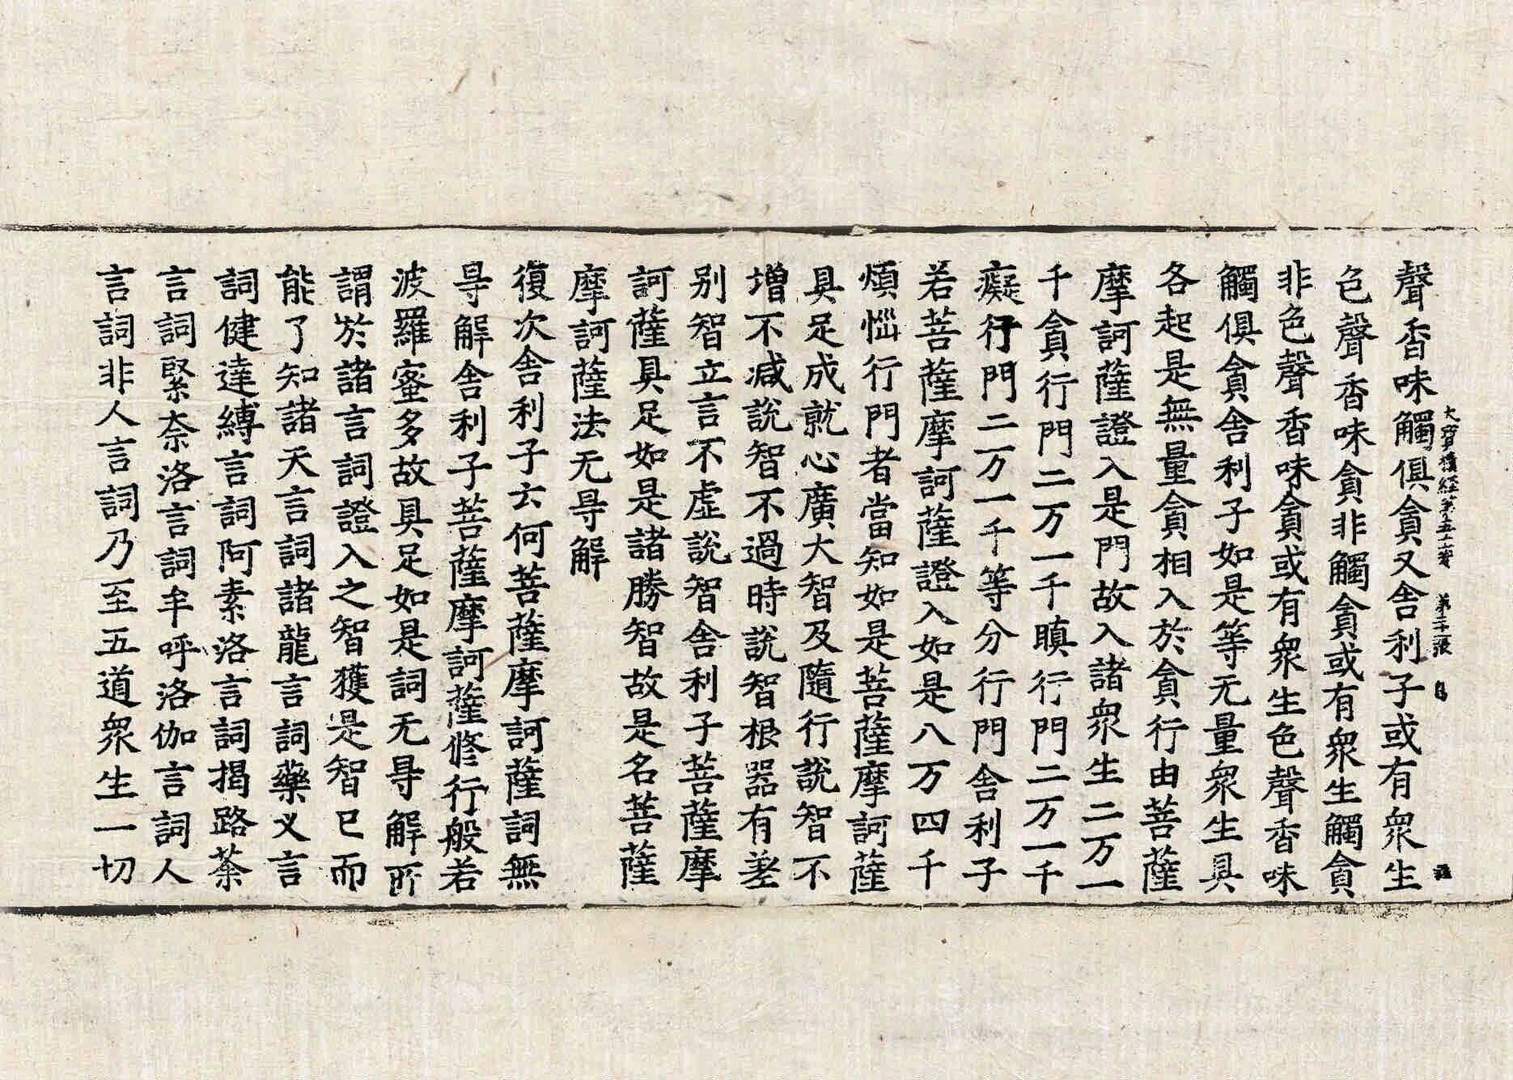 大寶積經第五十二卷 第二十二張 自
聲香味觸俱貪又舍利子或有衆生
色聲香味貪非觸貪或有衆生觸貪
非色聲香味貪或有衆生色聲香味
觸俱貪舍利子如是等无量衆生具
各起是無量貪相入於貪行由菩薩
摩訶薩證入是門故入諸衆生二万一
千貪行門二万一千瞋行門二万一千
癡行門二万一千等分行門舍利子
若菩薩摩訶薩證入如是八万四千
煩惱行門者當知如是菩薩摩訶薩
具足成就心廣大智及隨行說智不
增不減說智不過時說智根器有差
別智立言不虛說智舍利子菩薩摩
訶薩具足如是諸勝智故是名菩薩
摩訶薩法无㝵解
復次舍利子云何菩薩摩訶薩詞無
㝵解舍利子菩薩摩訶薩修行般若
波羅蜜多故具足如是詞无㝵解所
謂於諸言詞證入之智獲是智已而
能了知諸天言詞諸龍言詞藥叉言
詞健達縛言詞阿素洛言詞揭路荼
言詞緊奈洛言詞牟呼洛伽言詞人
言詞非人言詞乃至五道衆生一切